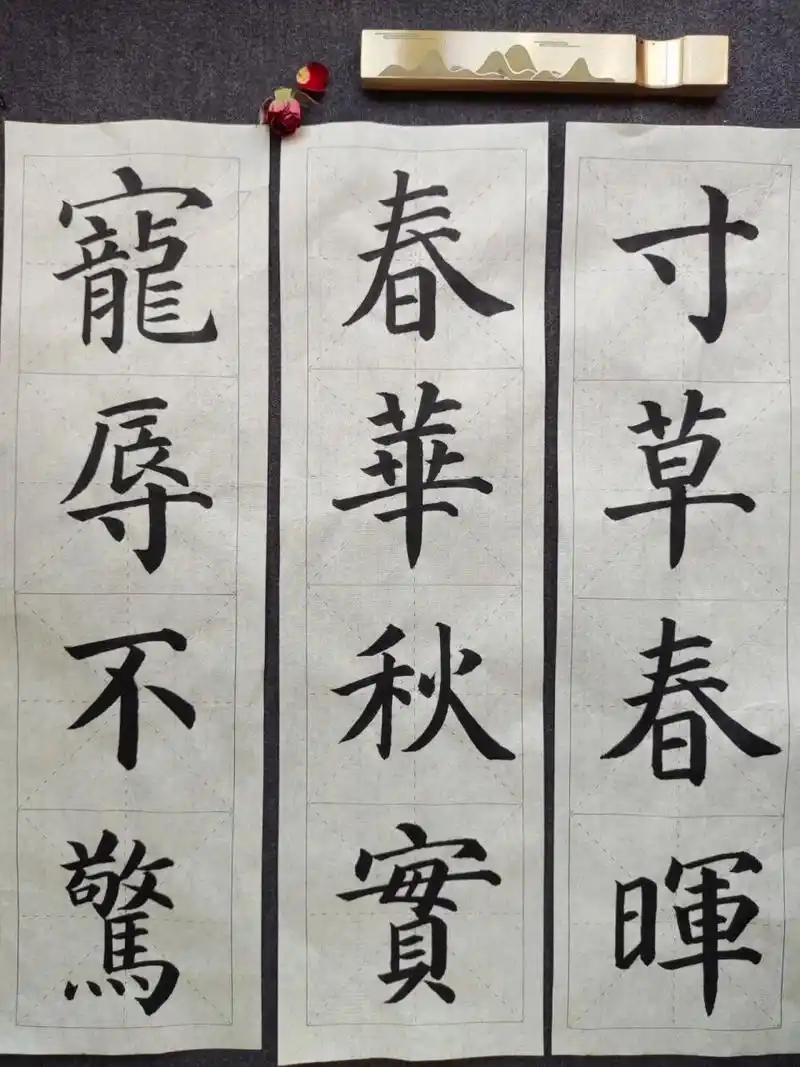 寸草春暉
春華秋實
寵辱不驚